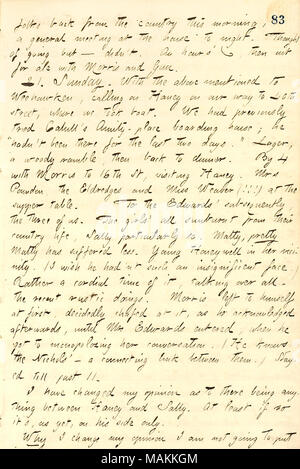 83
folks back from the country this morning,
a general meeting at the house to night. Thought
of going but — didn't. An hours' then out
for ale with Morris and Gun.
21. Sunday. With the above mentioned to
Weehawken, calling on Haney on our way to 40th
street, where we took boat. We had previously
tried Cahill's Amity place boarding house; he
"hadn't been there for the last two days." Lager,
a woody ramble, then back to dinner. By 4
with Morris to 16th St, visiting Haney. Mrs
Potter, the Eldredges and Miss Weaver (!!!) at the
supper table. To the Edwards' subsequently
the three of us. The girls all sunburnt from their
country life, Sally particularly so. Matty, pretty
Matty has suffered less. Young Honeywell in her vicinity.
(I wish he had n't such an insignificant face.)
Rather a cordial time of it, talking over all
the recent rustic doings. Morris left to himself
at first, decidedly shyed at it, as he acknowledged
afterwards, until Mrs. Edwards entered, when he
got to monopolizing her conversation. (He knows
the Nichols' — a connecting link between them.) Stayed
till past 11.
I have changed my opinion as to there being any
thing between Haney and Sally. At least if so
it's, as yet, on his side only.
Why I change my opinion I am not going to put
alamy
Image ID: MAKKGM
www.alamy.com